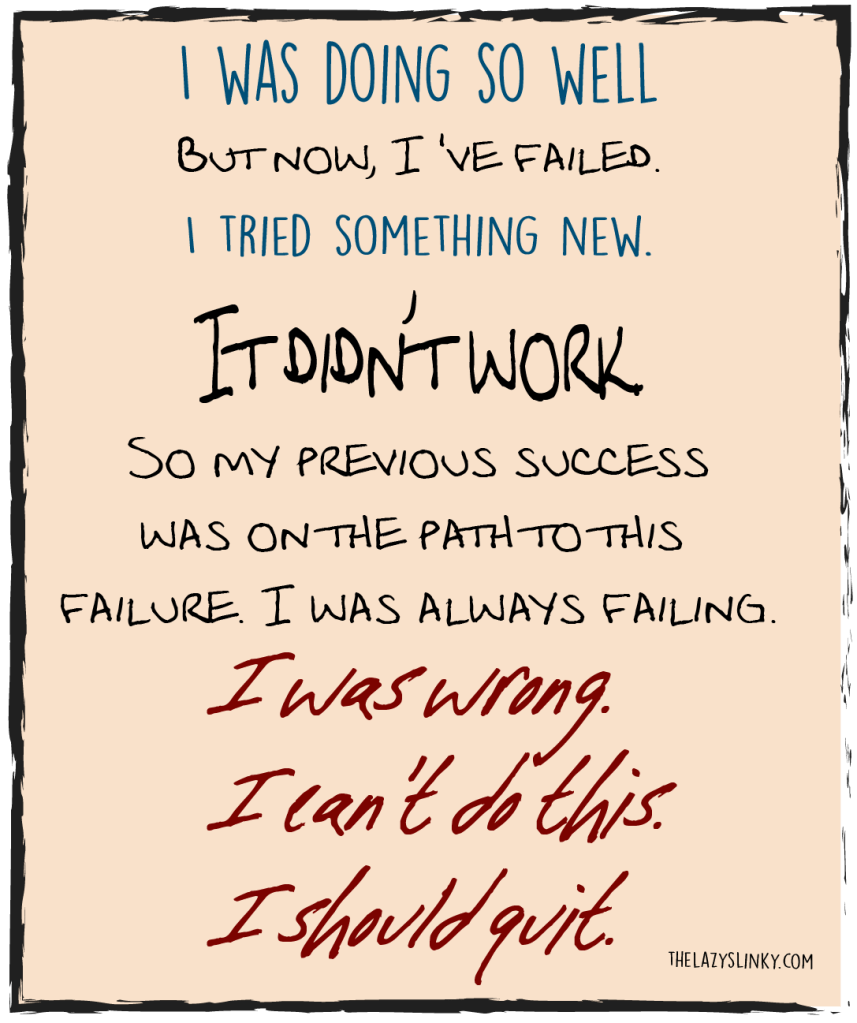 I WAS DOING SO WELL
BUT NOW, I'VE FAILED.
I TRIED SOMETHING NEW.
IT DIDN'T WORK.
SO MY PREVIOUS SUCCESS
WAS ON THE PATH TO THIS
FAILURE. I WAS ALWAYS FAILING.
I was wrong.
I can't do this.
I should quit.
THELAZYSLINKY.COM